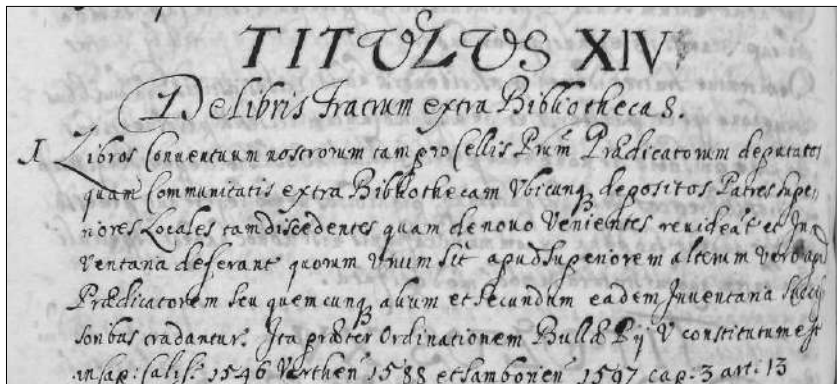 TITULUS XIV
De libris Fratrum extra Bibliothecas.
1 Libros Conventuum nostrorum tam pro Cellis Prum Prædicatorum deputatos
quam Communitatis extra Bibliothecam Ubicunq depositos Patres supe,
riores Locales tam discedentes quam de novo Venientes revideāt et In,
ventaria deferant quorum Unum sit apud superiorem alterum Vero apd
Prædicatorem seu quemcunq alium et secundum eadem Inventaria
soribus tradantur. Ita præter Ordinationem Bullæ Pij V constitutum est
in cap: Calis: 1546 Varthen 1588 et Samborien 1597 cap. 3 art: 13